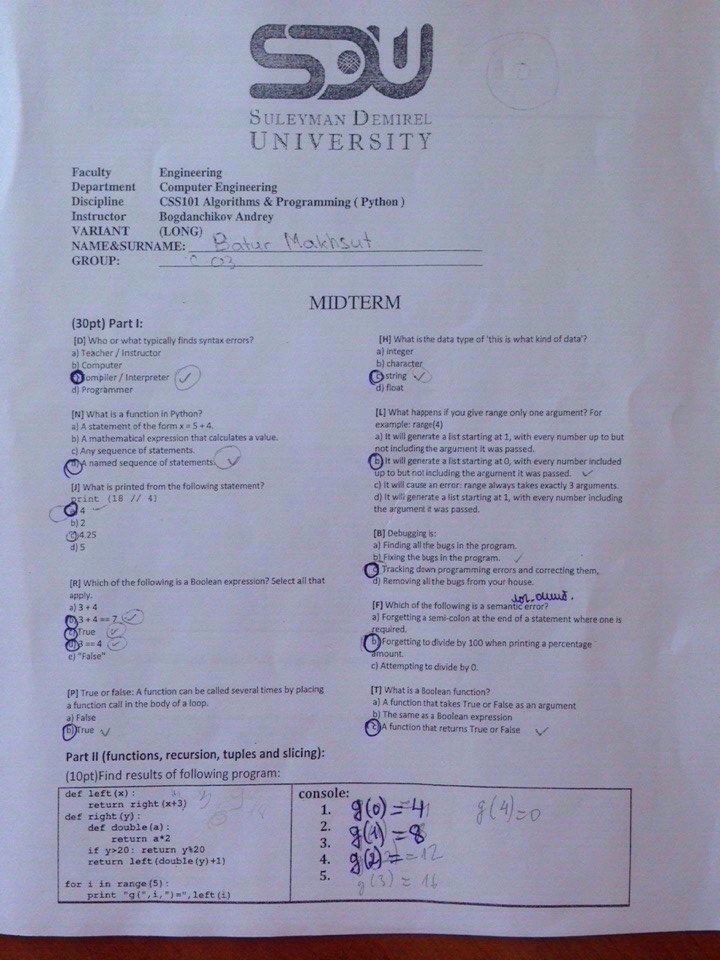 SDU
SULEYMAN DEMIREL
UNIVERSITY
Faculty Engineering
Department Computer Engineering
Discipline CSS101 Algorithms & Programming ( Python )
Instructor Bogdanchikov Andrey
VARIANT (LONG)
NAME&SURNAME: Batur Makhsut
GROUP: 03
MIDTERM
(30pt) Part I:
[D] Who or what typically finds syntax errors?
a) Teacher / Instructor
b) Computer
c) Compiler / Interpreter
d) Programmer
[N] What is a function in Python?
a) A statement of the form x = 5 + 4.
b) A mathematical expression that calculates a value.
c) Any sequence of statements.
d) A named sequence of statements.
[J] What is printed from the following statement?
print (18 // 4)
a) 4
b) 2
c) 4.25
d) 5
[R] Which of the following is a Boolean expression? Select all that
apply.
a) 3 + 4
b) 3 + 4 == 7
c) True
d) 3 == 4
e) "False"
[P] True or false: A function can be called several times by placing
a function call in the body of a loop.
a) False
b) True
[H] What is the data type of 'this is what kind of data'?
a) integer
b) character
c) string
d) float
[L] What happens if you give range only one argument? For
example: range(4)
a) It will generate a list starting at 1, with every number up to but
not including the argument it was passed.
b) It will generate a list starting at 0, with every number included
up to but not including the argument it was passed.
c) It will cause an error: range always takes exactly 3 arguments.
d) It will generate a list starting at 1, with every number including
the argument it was passed.
[B] Debugging is:
a) Finding all the bugs in the program.
b) Fixing the bugs in the program.
c) Tracking down programming errors and correcting them,
d) Removing all the bugs from your house.
[F] Which of the following is a semantic error?
a) Forgetting a semi-colon at the end of a statement where one is
required.
b) Forgetting to divide by 100 when printing a percentage
amount.
c) Attempting to divide by 0.
[T] What is a Boolean function?
a) A function that takes True or False as an argument
b) The same as a Boolean expression
c) A function that returns True or False
Part II (functions, recursion, tuples and slicing):
(10pt)Find results of following program:
def left(x):
return right(x+3)
def right(y):
def double(a):
return a*2
if y>20: return y%20
return left(double(y)+1)
for i in range(5):
print "g(",i,")=",left(i)
console:
1. g(0)=4 g(4)=0
2. g(1)=8
3.
4. g(2)= =12
5. g(3) = 16